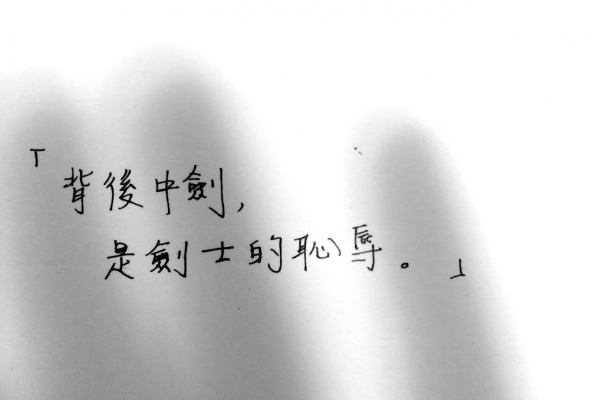 「背後中劍,
是劍士的恥辱。」